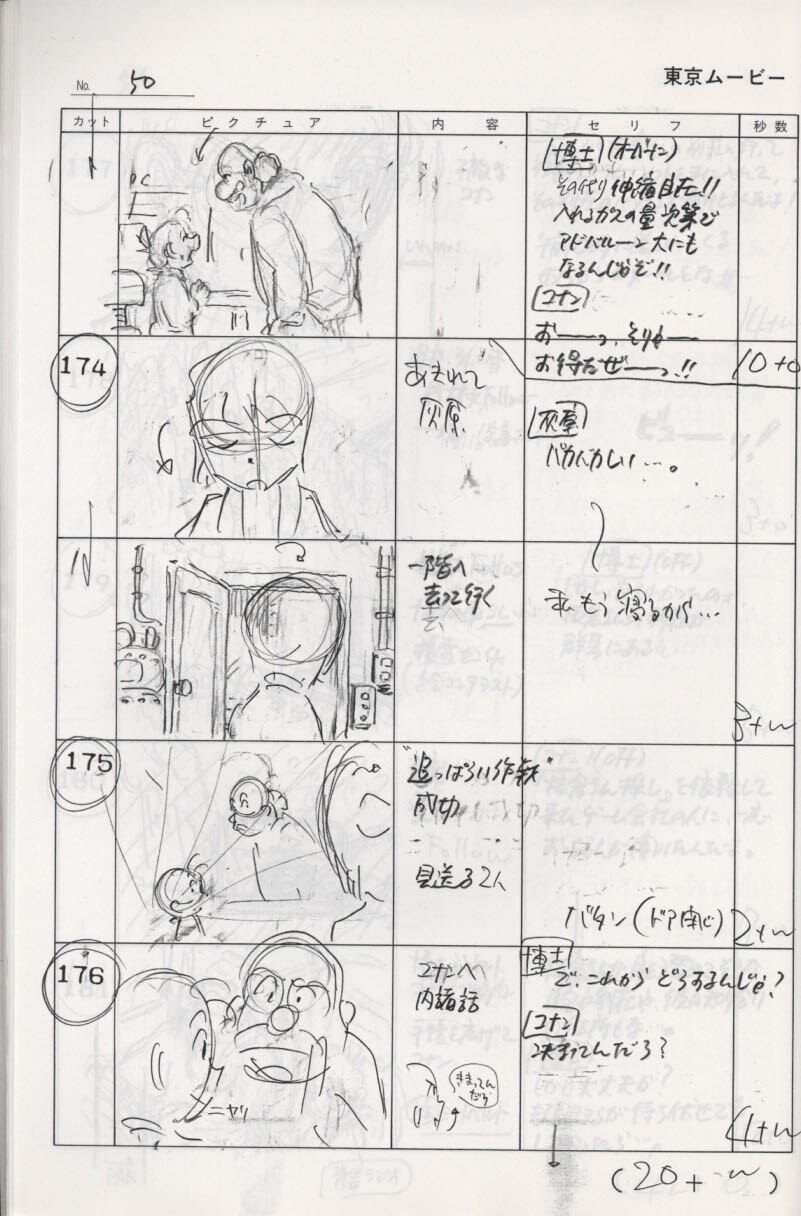 No. 50
東京ムービー
カット ピクチュア 内容 セリフ 秒数
PC
博士 (オーバーに)
その代り伸縮自在!!
入れるガスの量次第で
アドバルーン大にも
なるんじゃぞ!!
コナン
おーーっ、そりゃー
お得だぜーーっ!!
10+0
174
あきれて
灰原
灰原
バカバカしい…。
一階へ
去って行く
私もう寝るから…
3+
175
"追っぱらい作戦"
成功
見送る2人
バタン(ドア閉じ)
2+
176
ニヤリ
コナンへ
内緒話
きまってん
だろ
博士
で、これからどうするんじゃ?
コナン
決まってんだろ?
4+
(20+ )